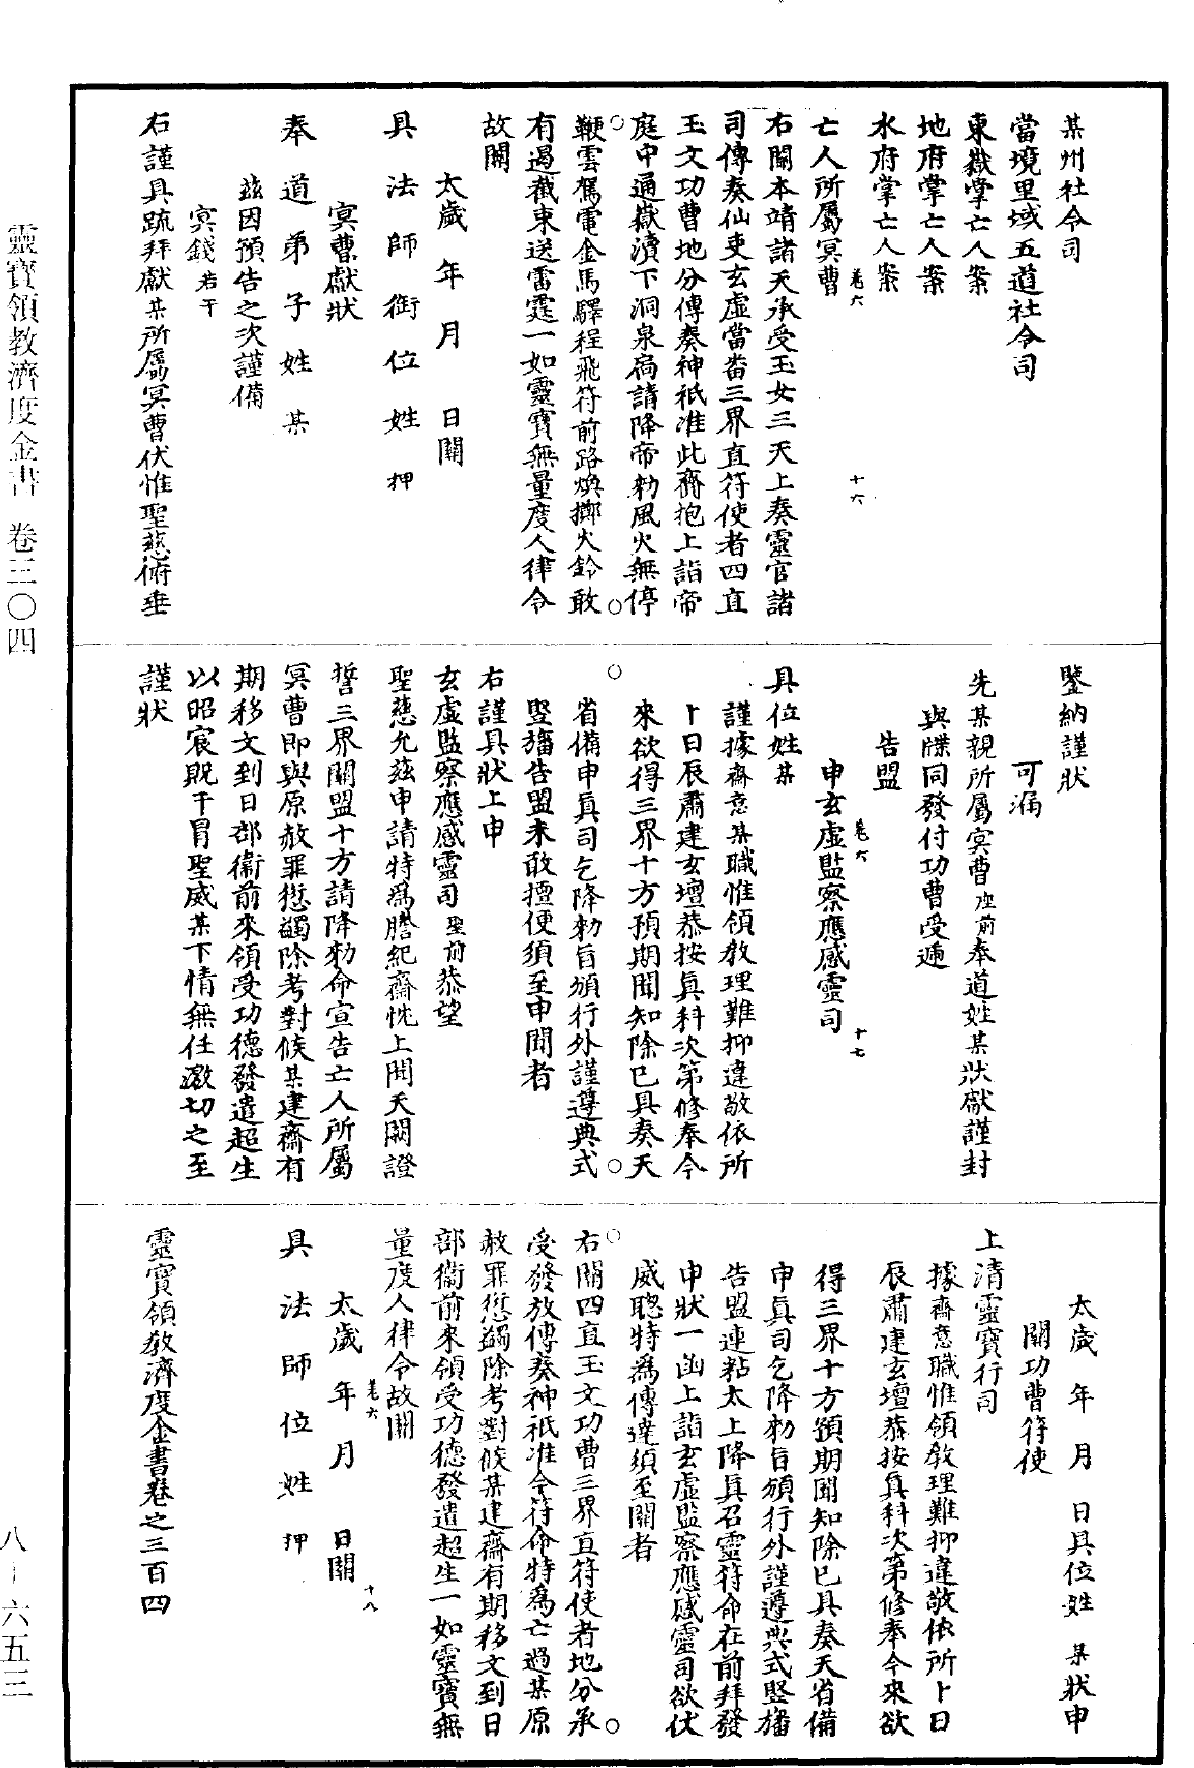 某州社令司
當境里域五道社令司
東嶽掌亡人案
地府掌亡人案
水府掌亡人案
卷六 十六
亡人所屬冥曹
右關本靖諸天承受玉女三天上奏靈官諸
司傳奏仙吏玄虛當畨三界直符使者四直
玉文功曹地分傳奏神祇准此齎抱上詣帝
庭中通嶽瀆下洞泉扃請降帝勑風火無停
鞭雲駕電金馬驛程飛符前路煥擲火鈴敢
有遏截東送雷霆一如靈寶無量度人律令
故關
太歲 年 月 日關
具法師銜位姓押
冥曹獻狀
奉道弟子姓某
茲因預告之次謹備
冥錢若干
右謹具疏拜獻某所屬冥曹伏惟聖慈俯垂
鑒納謹狀
可漏
先某親所屬冥曹座前奉道姓某狀獻謹封
與牒同發付功曹受遞
告盟
卷六 十七
申玄虛監察應感靈司
具位姓某
謹據齋意某職惟領教理難抑違敬依所
卜日辰肅建玄壇恭按眞科次第修奉今
來欲得三界十方預期聞知除已具奏天
省備申眞司乞降勑旨頒行外謹遵典式
豎旛告盟未敢擅便須至申聞者
右謹具狀上申
玄虛監察應感靈司聖前恭望
聖慈允茲申請特爲謄紀齋忱上聞天闕證
誓三界關盟十方請降勑命宣告亡人所屬
冥曹即與原赦罪愆蠲除考對候某建齋有
期移文到日部衞前來領受功德發遣超生
以昭宸旣干冒聖威某下情無任激切之至
謹狀
太歲 年 月 日具位姓 某狀申
關功曹符使
上清靈寶行司
據齋意職惟領教理難抑違敬依所卜日
辰肅建玄壇恭按眞科次第修奉今來欲
得三界十方預期聞知除已具奏天省備
申眞司乞降勑旨頒行外謹遵典式豎旛
告盟連粘太上降眞召靈符命在前拜發
申狀一函上詣玄虛監察應感靈司欲伏
威聰特爲傳達須至關者
右關四直玉文功曹三界直符使者地分承
受發放傳奏神祇准令符命特爲亡過某原
赦罪愆蠲除考對候某建齋有期移文到日
部衞前來領受功德發遣超生一如靈寶無
量度人律令故關
卷六 十八
太歲 年 月 日關
具法師位姓押
靈寶領教濟度金書卷之三百四
靈寶領教濟度金書 卷三〇四
八—六五三